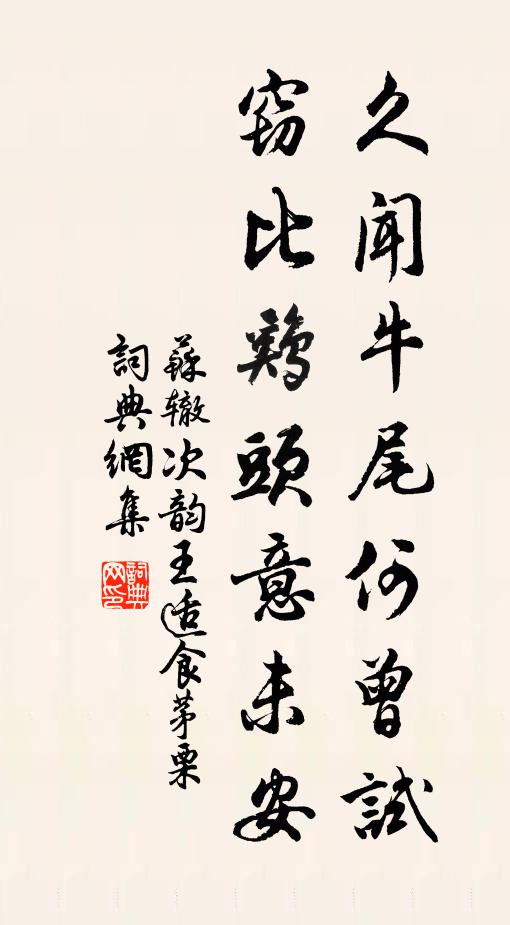 久聞牛尾何曾試
窃比鷄頭意未安
蘇辙次韵王适食茅栗
詞典網集
詞典
网印